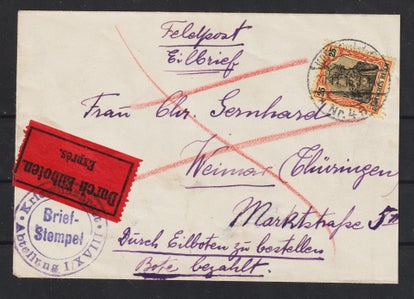 Feldpost
Eilbrief
Frau Chr. Gernhard
Weimar (Thüringen)
Marktstraße
Durch Eilboten zu bestellen
Bote bezahlt.
Durch Eilboten
Exprès.
Brief-
Stempel
Abteilung
25